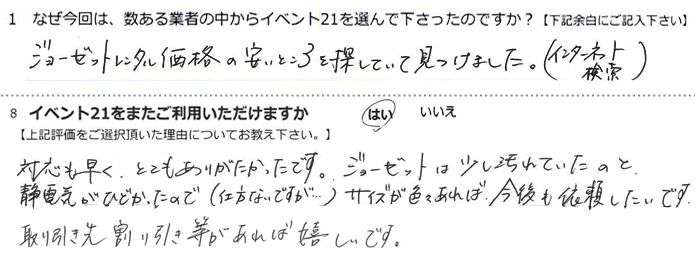 1 なぜ今回は、数ある業者の中からイベント21を選んで下さったのですか？【下記余白にご記入下さい】
ジョーゼットレンタル価格の安いところを探していて見つけました。(インターネット検索)
8 イベント21をまたご利用いただけますか はい いいえ
【上記評価をご選択頂いた理由についてお教え下さい。】
対応も早く、とてもありがたかったです。ジョーゼットは少し汚れていたのと、
静電気がひどかったので(仕方ないですが…)サイズが色々あれば、今後も依頼したいです。
取り引き先割り引き等があれば嬉しいです。